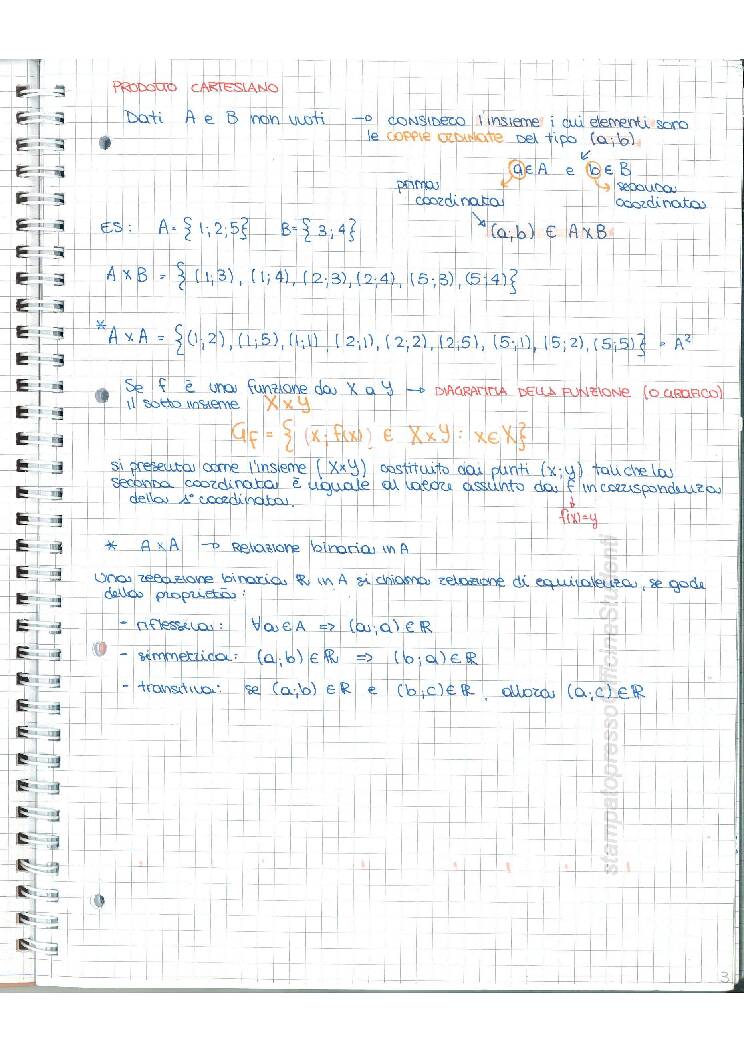 PRODOTTO CARTESIANO
Dati A e B non vuoti → CONSIDERO l'insieme i cui elementi sono
le COPPIE ORDINATE DEL TIPO (a;b)
a∈A e b∈B
prima seconda
coordinata coordinata
(a;b) ∈ A×B
ES: A={1;2;5} B={3;4}
A×B = {(1;3), (1;4), (2;3), (2;4), (5;3), (5;4)}
*A×A = {(1;2), (1;5), (1;1) (2;1), (2;2), (2;5), (5;1), (5;2), (5;5)} = A²
Se f è una funzione da X a Y → DIAGRAMMA DELLA FUNZIONE (O GRAFICO)
il sotto insieme X×Y
Gf = {(x; f(x)) ∈ X×Y : x∈X}
si presenta come l'insieme (X×Y) costituito dai punti (x;y) tali che la
seconda coordinata è uguale al valore assunto da f in corrispondenza
della 1ª coordinata.
f(x)=y
* A×A → Relazione binaria in A
Una relazione binaria R in A si chiama relazione di equivalenza, se gode
della proprietà:
- riflessiva: ∀a∈A => (a;a)∈R
- simmetrica: (a;b)∈R => (b;a)∈R
- transitiva: se (a;b)∈R e (b;c)∈R, allora (a;c)∈R
stampatopressoOfficinaStudenti
3